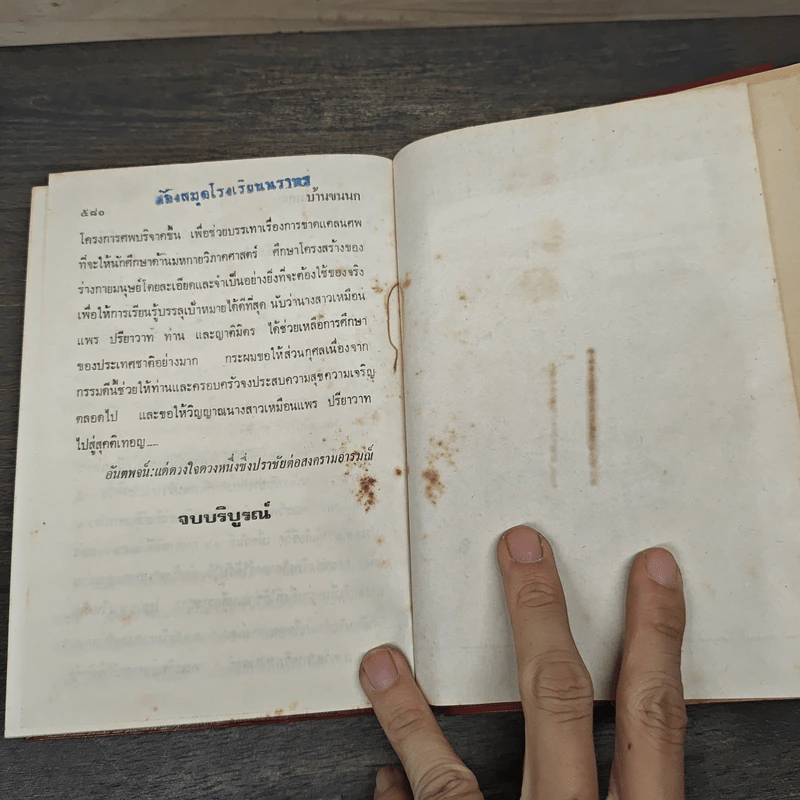 ห้องสมุดโรงเรียนนราทร
๕๘๑ บ้านขนนก
โครงการศพบริจาคขึ้น เพื่อช่วยบรรเทาเรื่องการขาดแคลนศพ
ที่จะให้นักศึกษาด้านมหกายวิภาคศาสตร์ ศึกษาโครงสร้างของ
ร่างกายมนุษย์โดยละเอียดและจำเป็นอย่างยิ่งที่จะต้องใช้ของจริง
เพื่อให้การเรียนรู้บรรลุเป้าหมายได้ดีที่สุด นับว่านางสาวเหมือน
แพร ปรียาวาท ท่าน และญาติมิตร ได้ช่วยเหลือการศึกษา
ของประเทศชาติอย่างมาก กระผมขอให้ส่วนกุศลเนื่องจาก
กรรมดีนี้ช่วยให้ท่านและครอบครัวจงประสบความสุขความเจริญ
ตลอดไป และขอให้วิญญาณนางสาวเหมือนแพร ปรียาวาท
ไปสู่สุคติเทอญ.....
อันตพจน์:แด่ดวงใจดวงหนึ่งซึ่งปราชัยต่อสงครามอารมณ์
จบบริบูรณ์